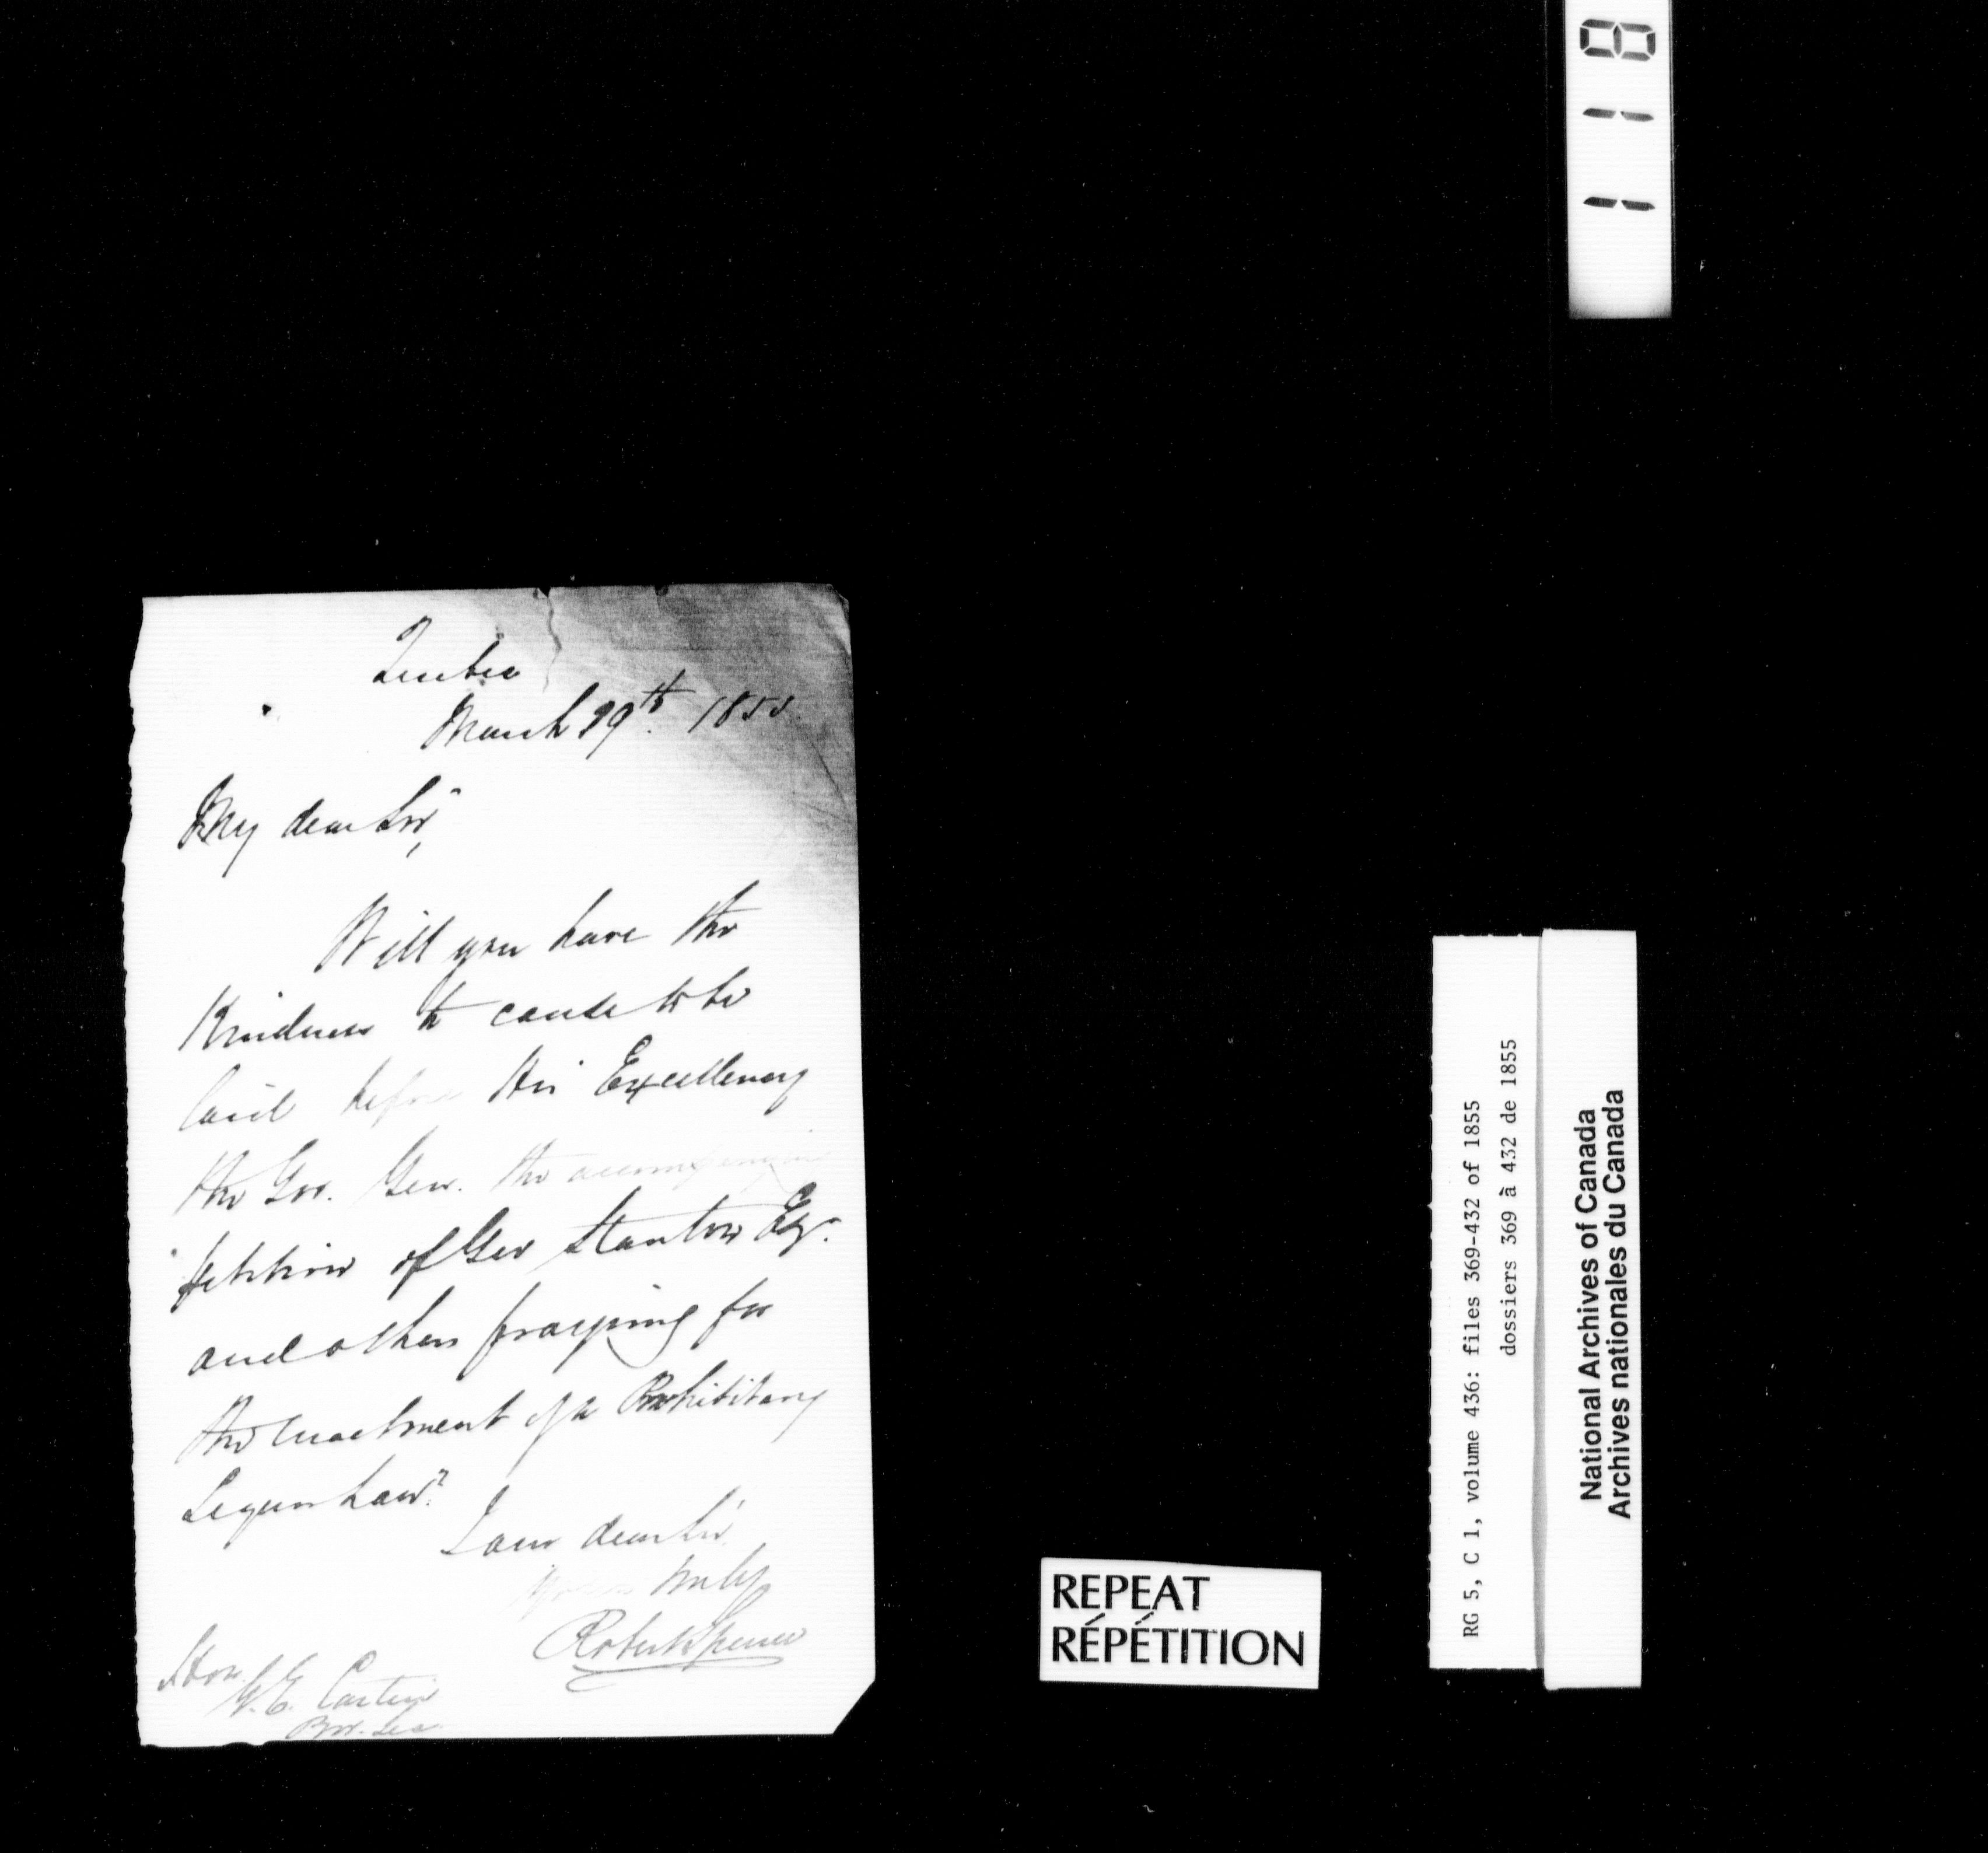 Quebec
March 29th. 1855
My dear Sir,
Will you have the
Kindness to cause to be
laid before His Excellency
the Gov. Gen. the accompanying
petition of Geo Stanton Esqr.
and others praying for
the enactment of a Prohibitory
Liquor Law?
I am dear Sir
Yours truly
Robert Spence
Hon.
G. E. Cartier
Prov. Sec.
REPEAT
RÉPÉTITION
RG 5, C 1, volume 436: files 369-432 of 1855
dossiers 369 à 432 de 1855
National Archives of Canada
Archives nationales du Canada
118